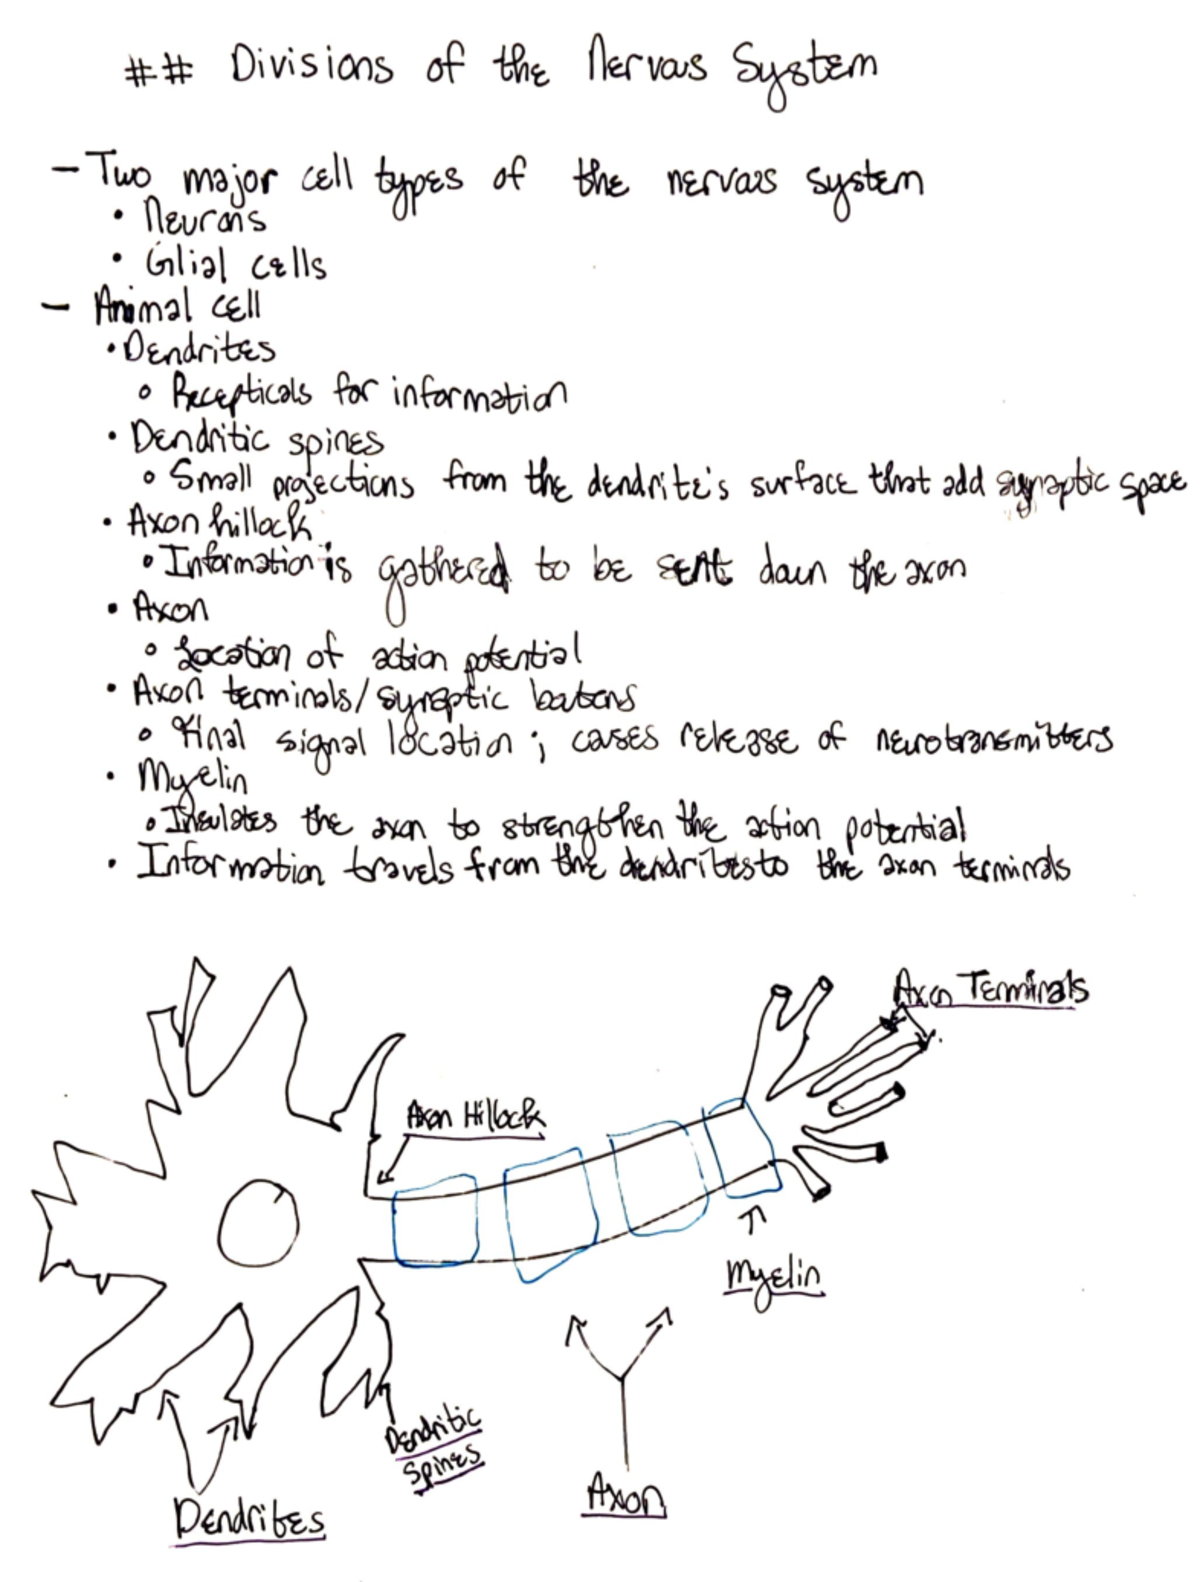 ## Divisions of the Nervous System
- Two major cell types of the nervous system
• Neurons
• Glial cells
- Animal cell
• Dendrites
◦ Recepticals for information
• Dendritic spines
◦ Small projections from the dendrite's surface that add synaptic space
• Axon hillock
◦ Information is gathered to be sent down the axon
• Axon
◦ Location of action potential
• Axon terminals/synaptic butons
◦ Final signal location; cases release of neurotransmitters
• Myelin
◦ Insulates the axon to strengthen the action potential
• Information travels from the dendrites to the axon terminals
Axon Terminals
Axon Hillock
Myelin
Dendritic
Spines
Axon
Dendrites